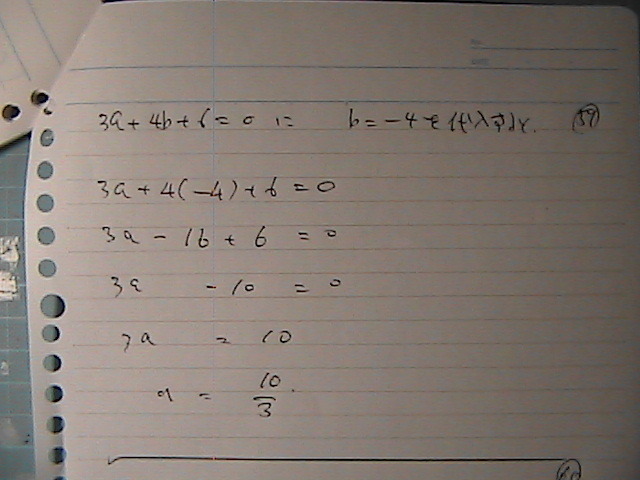 3a + 4b + 6 = 0 に b = -4 を代入すると. 59
3a + 4(-4) + 6 = 0
3a - 16 + 6 = 0
3a - 10 = 0
3a = 10
a = 10/3.